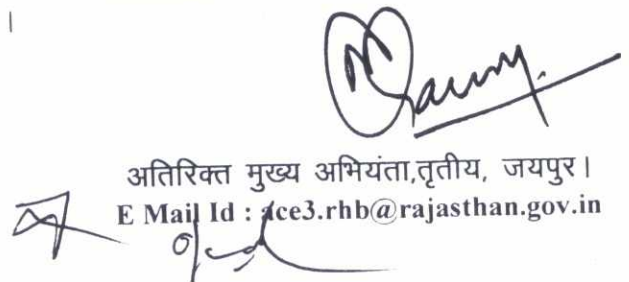 अतिरिक्त मुख्य अभियंता,तृतीय, जयपुर।
E Mail Id : ace3.rhb@rajasthan.gov.in